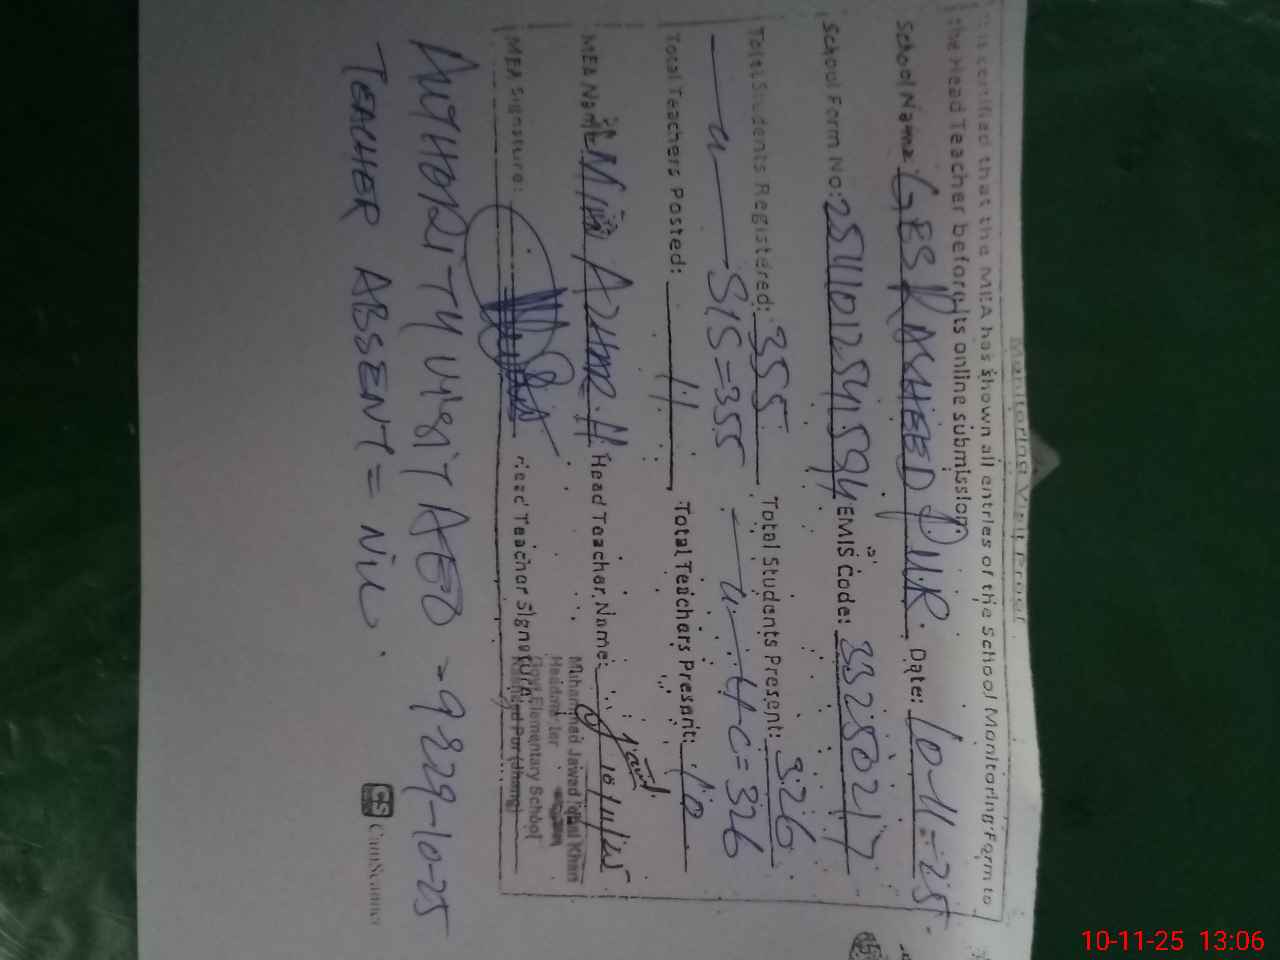 Monitoring Visit Proof
This certified that the MEA has shown all entries of the School Monitoring Form to
the Head Teacher before its online submission.
School Name: GES RASHEED PUR. Date: 10-11-25
School Form No: EMIS Code: 33250217
Total Students Registered: 355 Total Students Present: 326
SIS=355 HC=326
Total Teachers Posted: 11 Total Teachers Present: 10
MEA Name: AZHAR H Head Teacher Name:
10/11/25
Muhammad Jawad Iqbal Khan
Headmaster
Govt. Elementary School
Rasheed Pur (Jhang)
MEA Signature: Head Teacher Signature:
AUTHORITY VISIT AEO = 9829-10-25
TEACHER ABSENT = NIL.
CS CamScanner
10-11-25 13:06